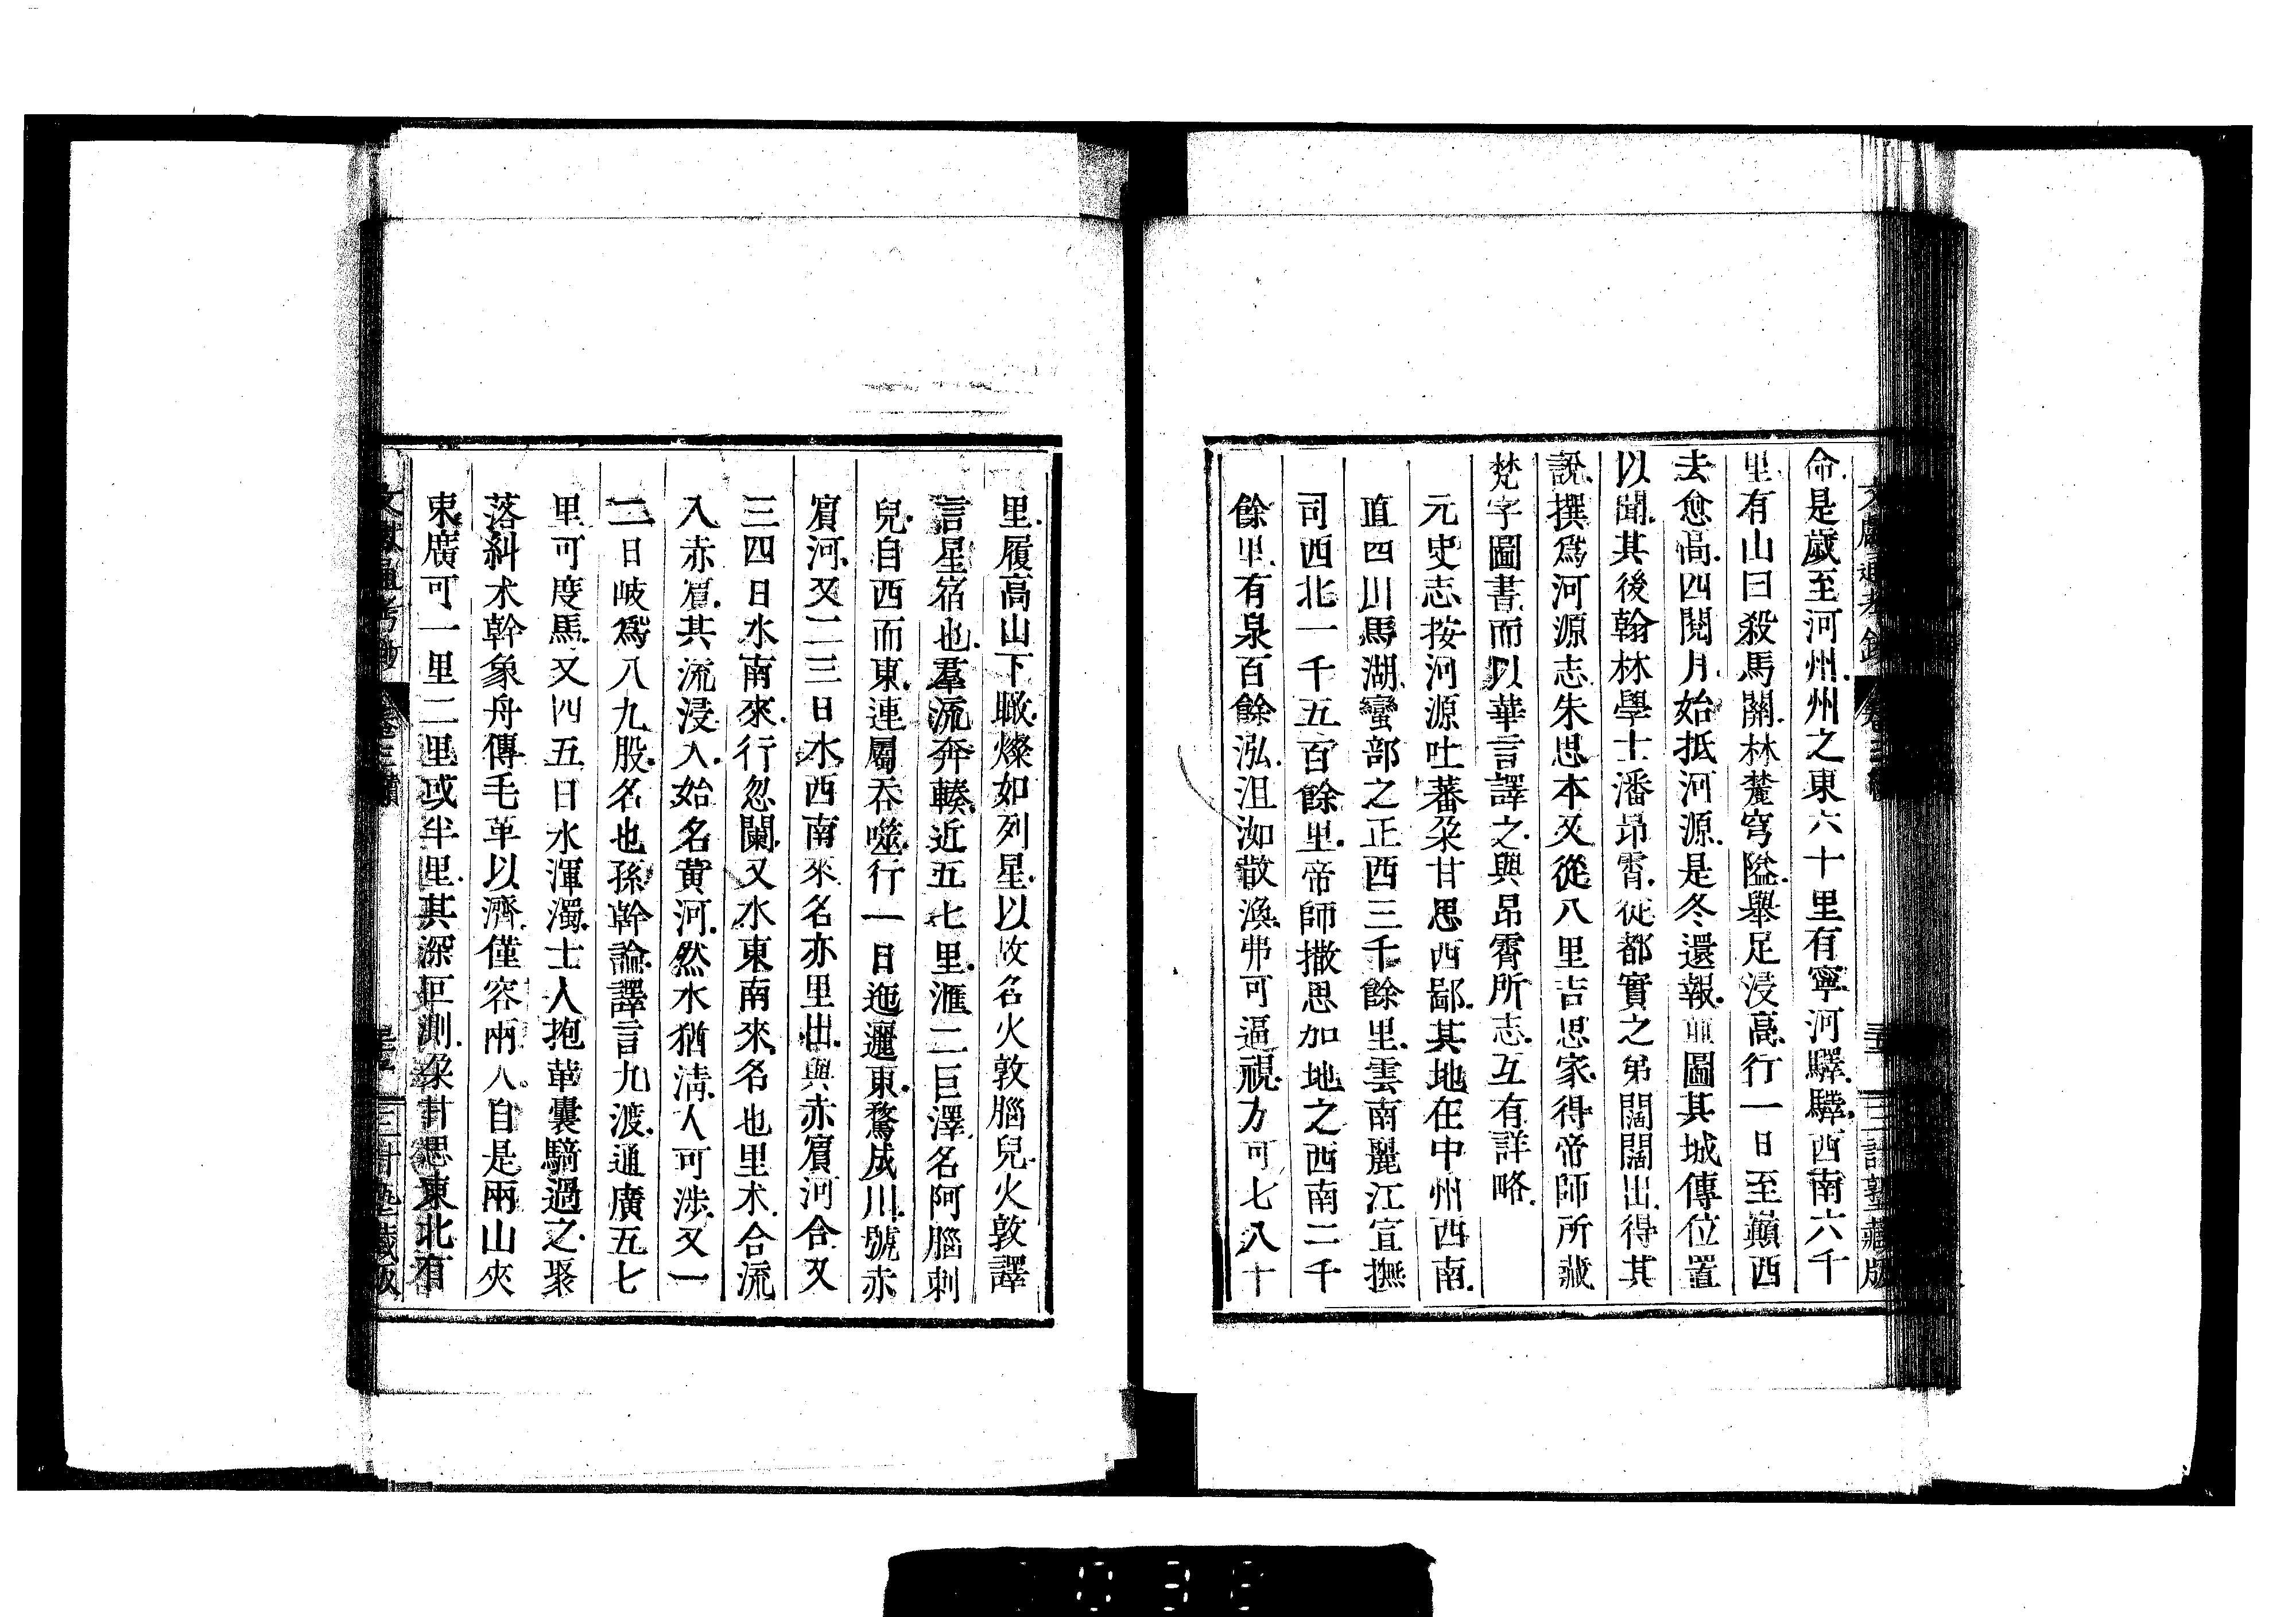 命是歲至河州州之東六十里有寧河驛驛西南六千
里有山曰殺馬關林麓穹隘舉足浸高行一日至巔西
去愈高四閱月始抵河源是冬還報並圖其城傳位置
以聞其後翰林學士潘昂霄從都實之弟闊闊出得其
說撰爲河源志朱思本又從八里吉思家得帝師所藏
梵字圖書而以華言譯之與昂霄所志互有詳略
元史志按河源吐蕃朶甘思西鄙其地在中州西南
直四川馬湖蠻部之正西三千餘里雲南麗江宣撫
司西北一千五百餘里帝師撒思加地之西南二千
餘里有泉百餘泓沮洳散渙弗可逼視方可七八十
里履高山下瞰燦如列星以故名火敦腦兒火敦譯
言星宿也羣流奔輳近五七里滙二巨澤名阿腦剌
兒自西而東連屬吞噬行一日迤邐東騖成川號赤
賓河又二三日水西南來名亦里出與赤賓河合又
三四日水南來行忽闌又水東南來名也里朮合流
入赤賓其流浸大始名黃河然水猶淸人可涉又一
二日岐爲八九股名也孫幹論譯言九渡通廣五七
里可度馬又四五日水渾濁土人抱革囊騎過之聚
落糾木幹象舟傳毛革以濟僅容兩人自是兩山夾
束廣可一里二里或半里其深叵測朶甘思東北有